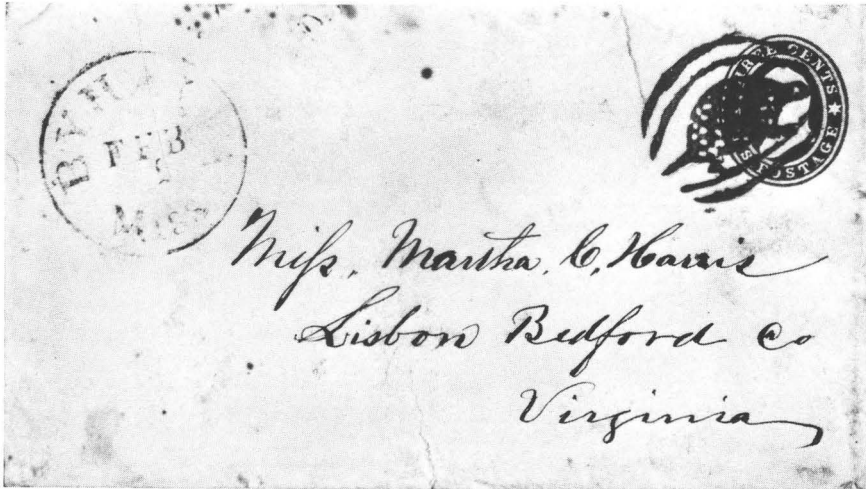 FEB
MISS
THREE CENTS
POSTAGE
Miſs, Martha, C, Harris
Lisbon Bedford Co
Virginia